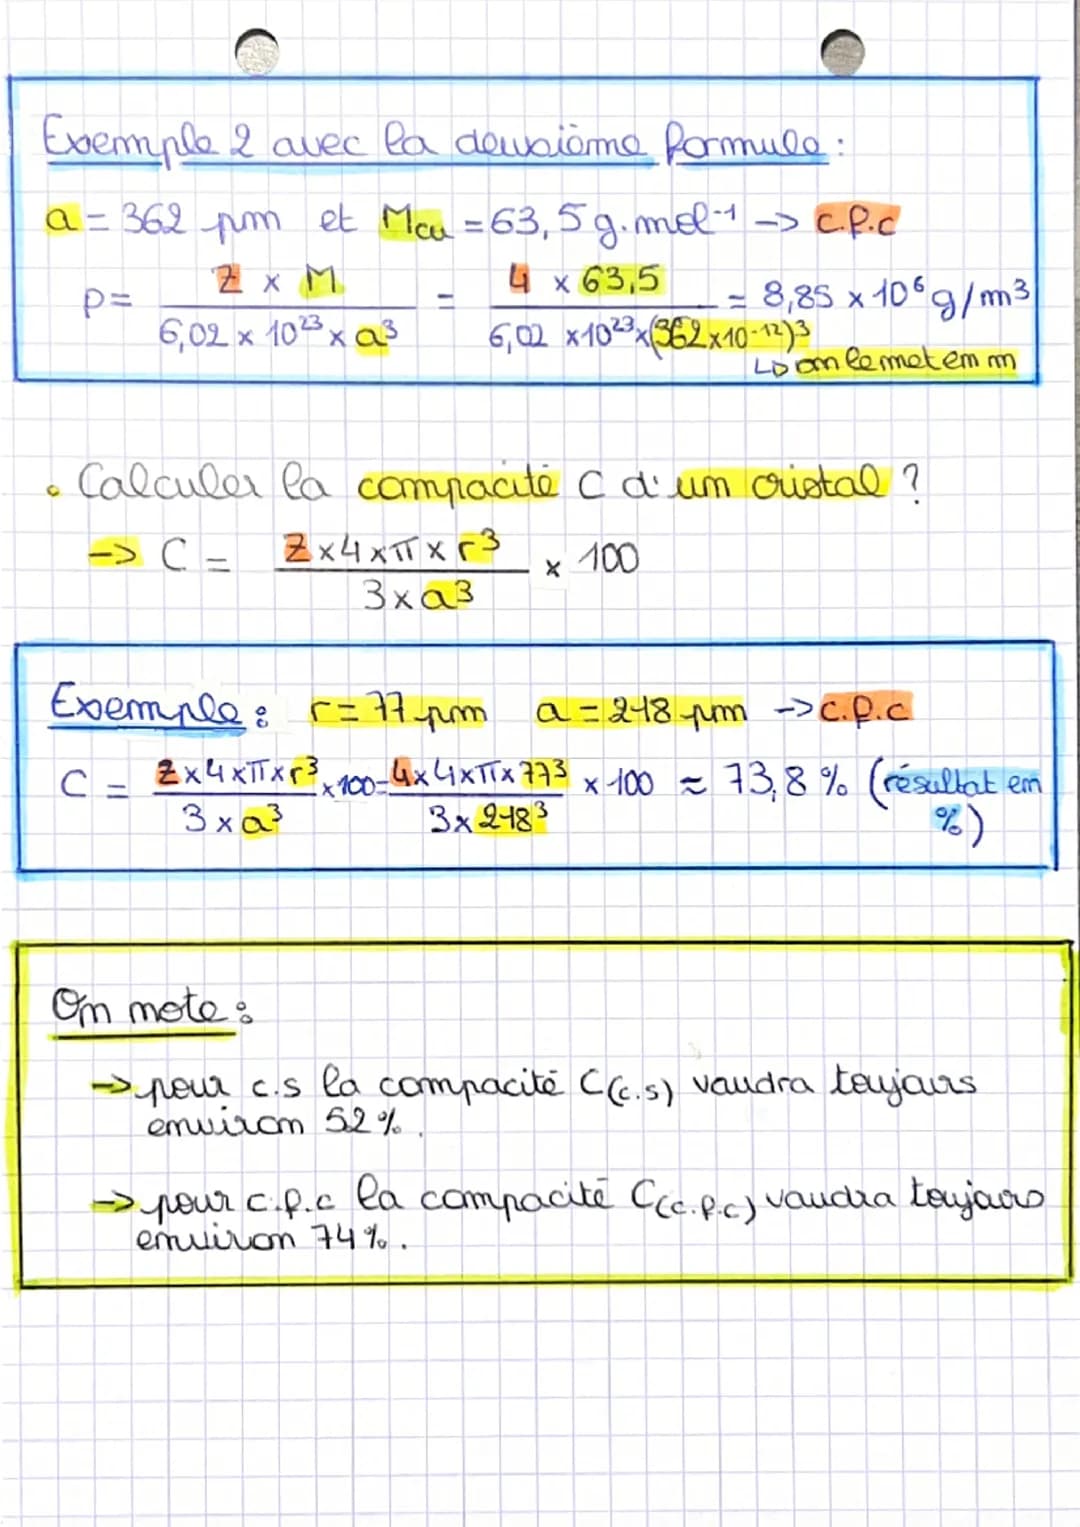 Exemple 2 avec la deuxième formule :
a = 362 pm et Mcu = 63,5 g.mol⁻¹ -> c.f.c
ρ = (Z × M) / (6,02 × 10²³ × a³) = (4 × 63,5) / (6,02 × 10²³ × (362×10⁻¹²)³) = 8,85 × 10⁶ g/m³
↳ on le met en m
• Calculer la compacité C d'un cristal ?
-> C = (Z×4×π×r³) / (3×a³) × 100
Exemple : r = 77 pm a = 218 pm -> c.f.c
C = (Z×4×π×r³) / (3×a³) ×100 = (4×4×π×77³) / (3×218³) × 100 ≈ 73,8 % (résultat en
%)
On note :
-> pour c.s la compacité C(c.s) vaudra toujours
environ 52 %.
-> pour c.f.c la compacité C(c.f.c) vaudra toujours
environ 74 %.